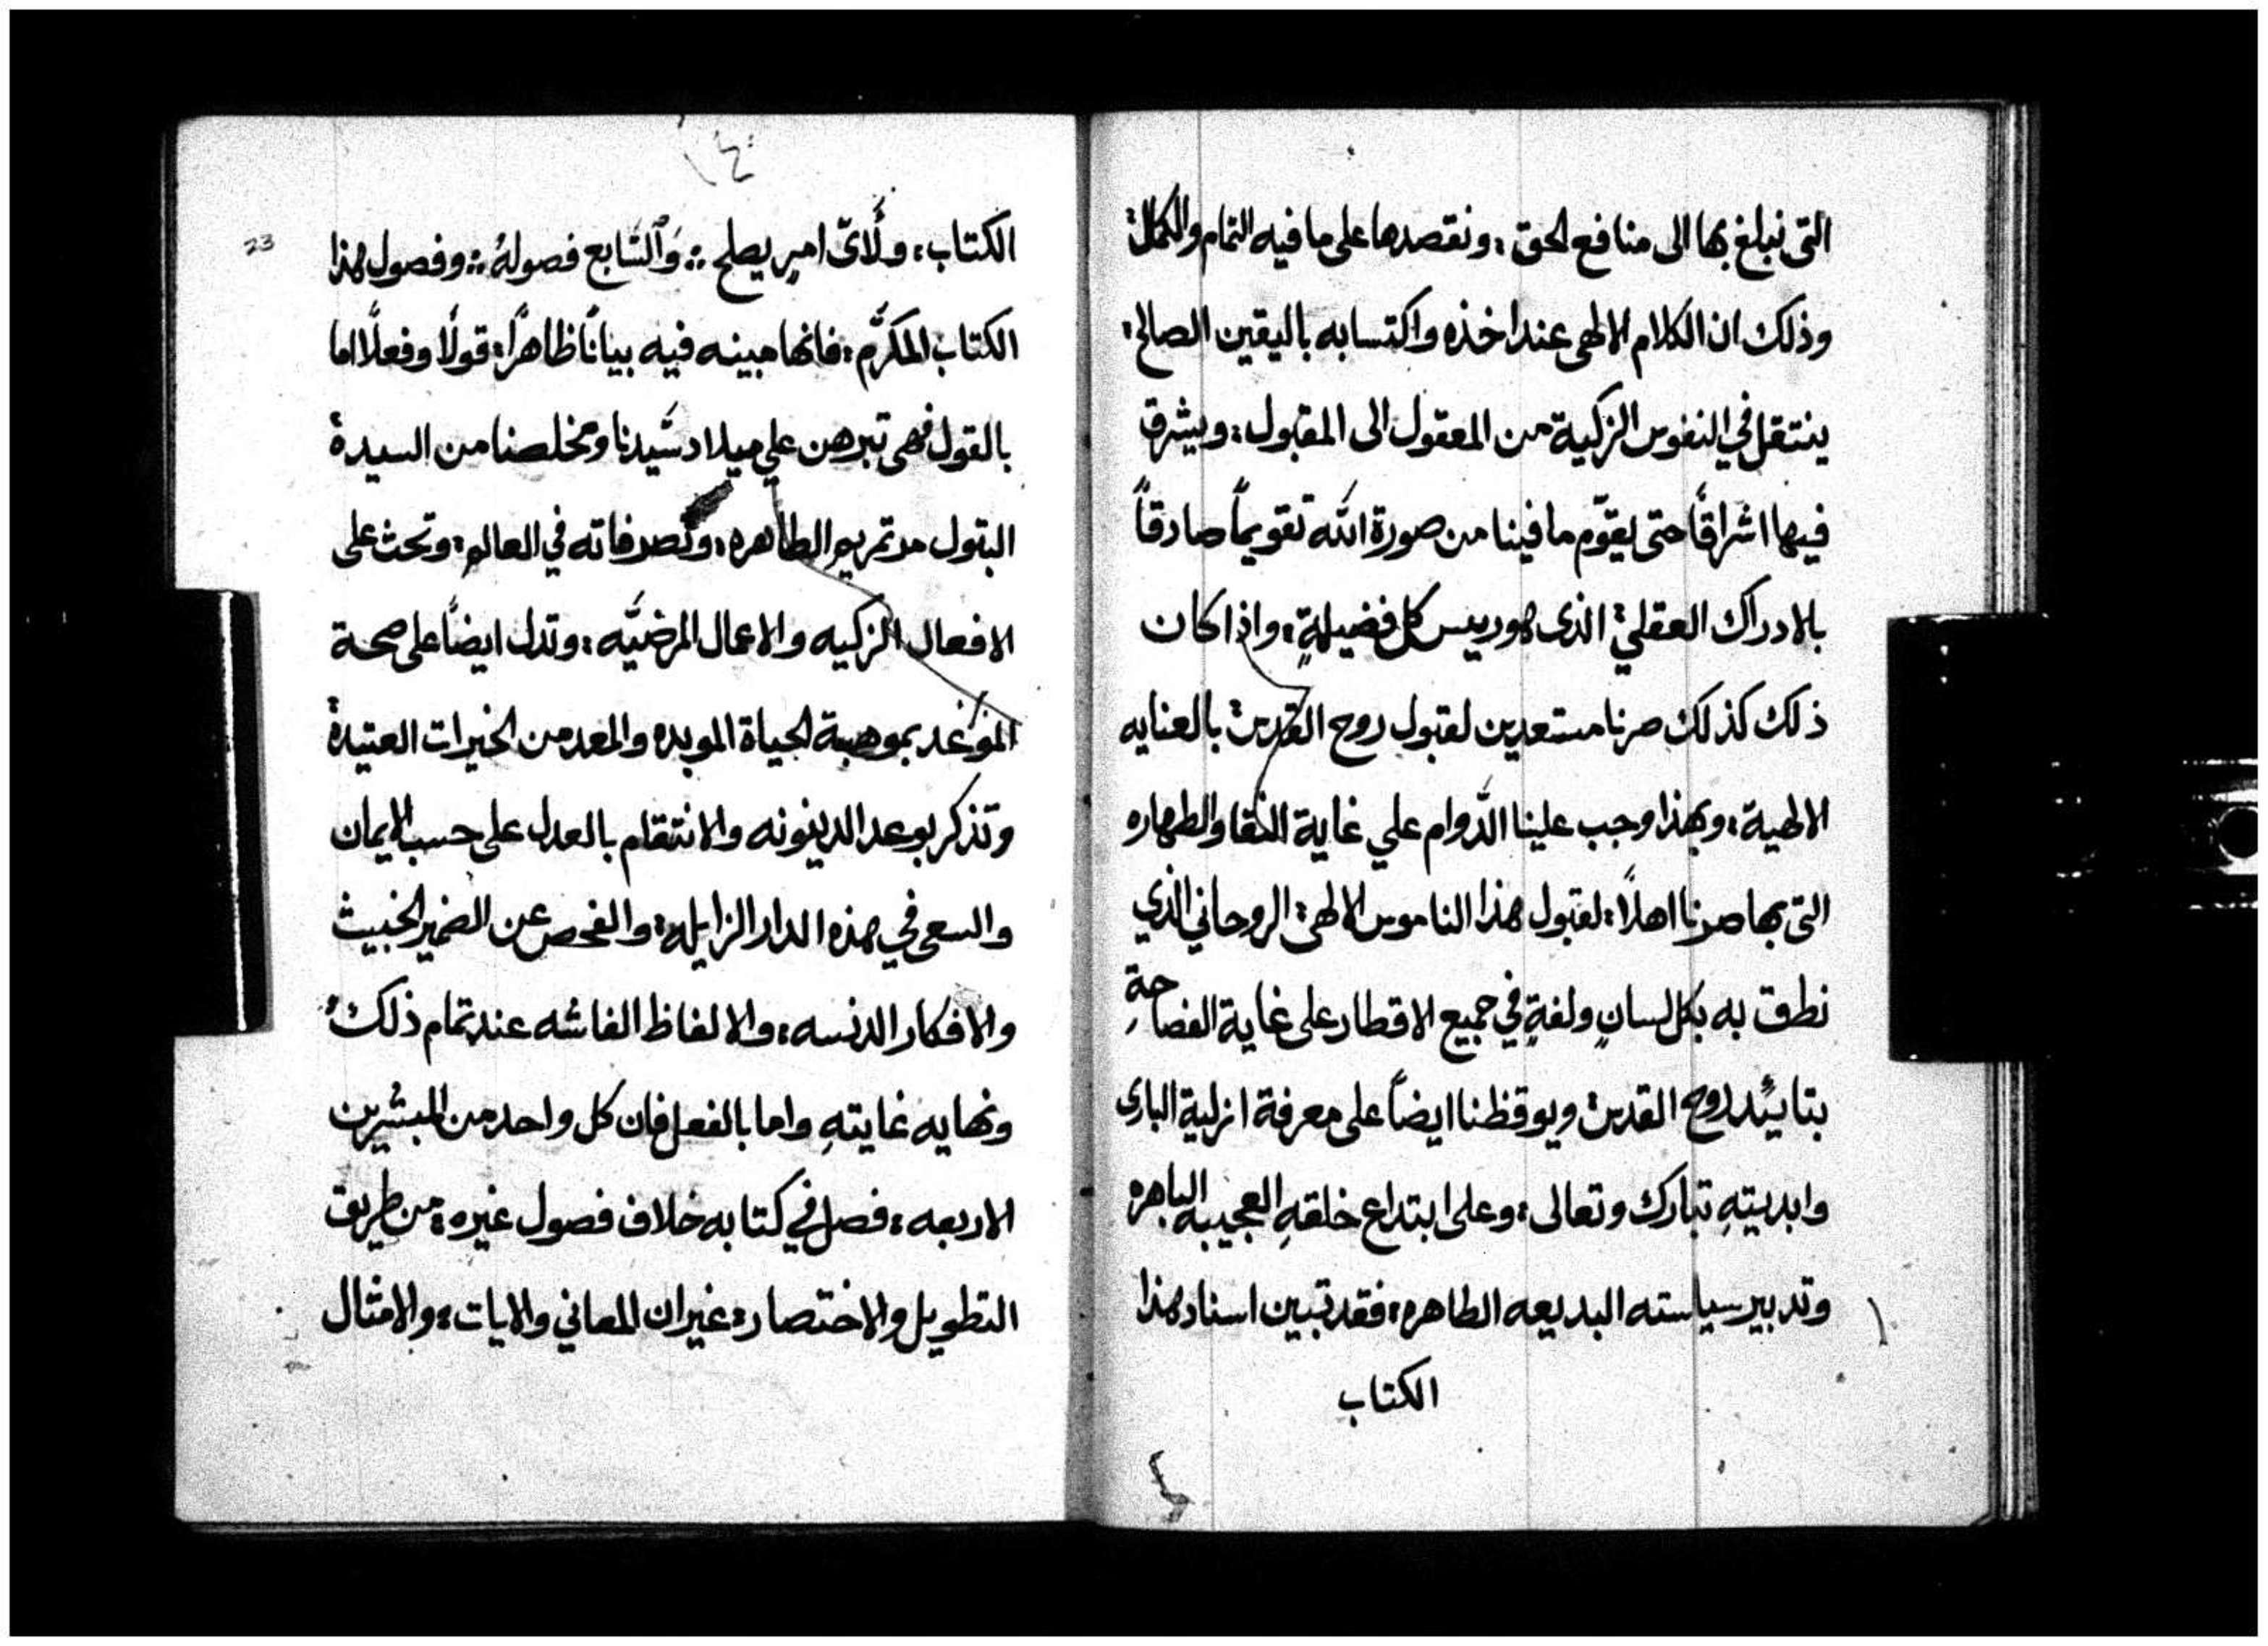 التى نبلغ بها الى منافع الحق ، ونقصدها على ما فيه التمام والكمال ؛
وذلك ان الكلام الالهى عند اخذه واكتسابه باليقين الصالح ؛
ينتقل في النفوس الزكية من المعقول الى المقبول ؛ ويشرق
فيها اشراقًا حتى يقوّم ما فينا من صورة الله تقويماً صادقاً
بالادراك العقلي ؛ الذى هو رييس كل فضيلةٍ ؛ واذا كان
ذلك كذلك صرنا مستعدين لقبول روح القدس ؛ بالعنايه
الالهية ؛ وبهذا وجب علينا الدَّوام علي غاية النقا والطهاره
التى بها صرنا اهلاً ؛ لقبول هذا الناموس الالهى ؛ الروحاني الذي
نطق به بكل لسانٍ ولغةٍ في جميع الاقطار على غاية الفصاحةِ
بتاييًد روح القدس ؛ ويوقظنا ايضاً على معرفة ازلية البارى
وابديتهِ تبارك وتعالى ؛ وعلى ابتداع خلقهِ العجيبه الباهره
وتدبير سياسته البديعه الطاهره ؛ فقد تبين اسناد هذا
الكتاب
١٤
23
الكتاب ؛ ولأىّ امرٍ يصلح ؞ وَالسَّابع فصولهُ ؞ وفصول هذا
الكتاب المكرَّم ؛ فانها مبينه فيه بيانًا ظاهرًا ؛ قولًا وفعلًا اما
بالقول فهى تبرهن علي ميلاد سَّيدنا ومخلصنا من السيدة
البتول مرتمريم الطاهره ؛ وتصرفاته في العالم ؛ وتحث على
الافعال الزكيه والاعمال المرضيَّه ؛ وتدل ايضًا على صحة
بموهبة الحياة الموبده والمعد من الخيرات العتيدة
وتذكر بوعد الدينونه والانتقام بالعدل على حسب الايمان
والسعى في هذه الدار الزايله ؛ والفحص عن الضمير الخبيث
والافكار الدنسه ؛ والالفاظ الفاسه عند تمام ذلك ؛
ونهايه غايتهِ واما بالفعل فان كل واحد من المبشرين
الاربعه ؛ فصل في كتابه خلاف فصول غيره ؛ من طريق
التطويل والاختصار ؛ غير ان المعاني والايات ؛ والامثال